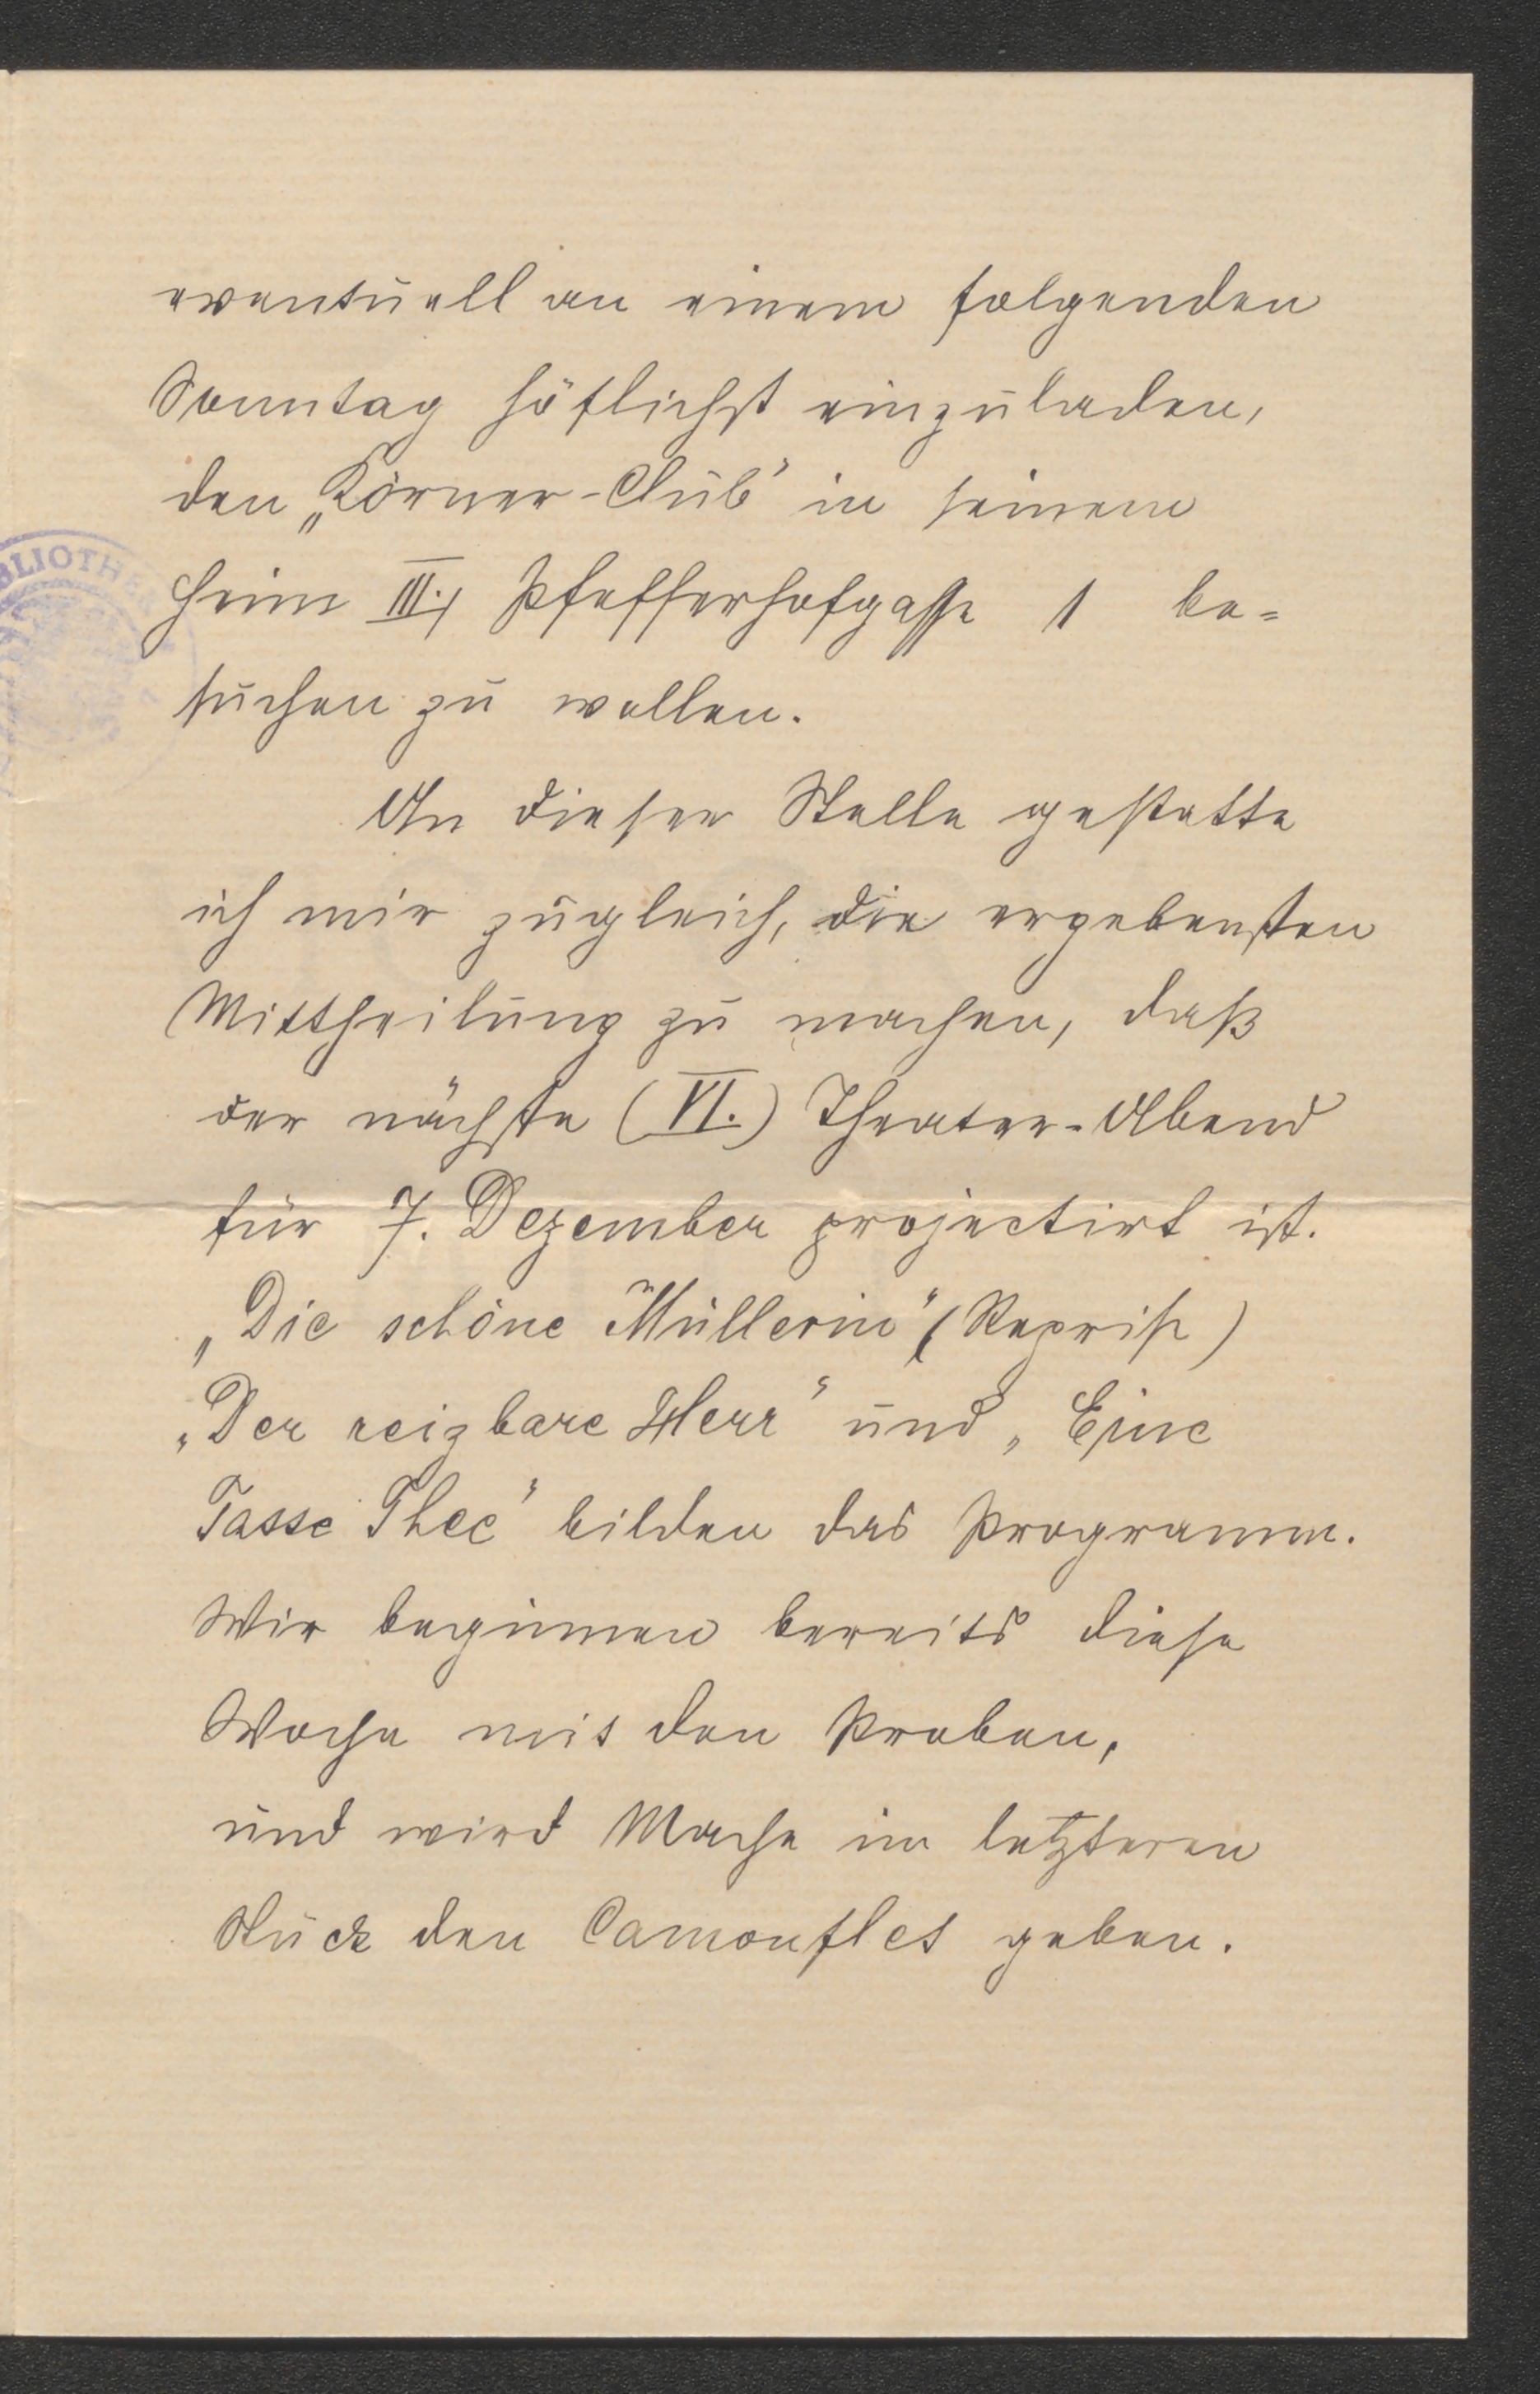 eventuell an einem folgenden
Sonntag höflichst einzuladen,
den „Körner-Club" in seinem
Heim III., Pfefferhofgasse 1 be=
suchen zu wollen.
An dieser Stelle gestatte
ich mir zugleich, die ergebensten
Mittheilung zu machen, daß
der nächste (VI.) Theater-Abend
für 7. Dezember projectirt ist.
„Die schöne Müllerin" (Reprise)
„Der reizbare Herr" und „Eine
Tasse Thee" bilden das Programm.
Wir beginnen bereits diese
Woche mit den Proben,
und wird Mache im letzteren
Stück den Camouflet geben.
BLIOTHE